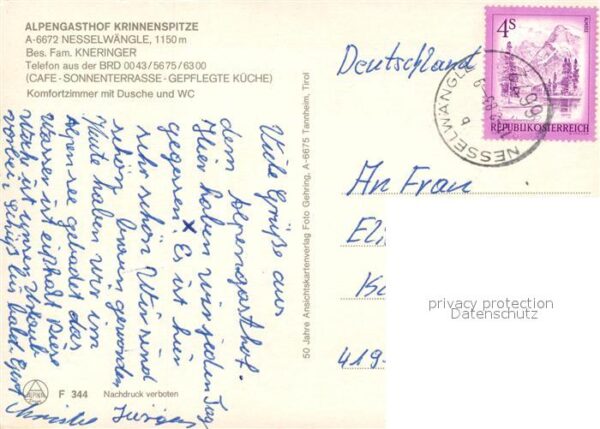 ALPENGASTHOF KRINNENSPITZE
A-6672 NESSELWÄNGLE, 1150 m
Bes. Fam. KNERINGER
Telefon aus der BRD 0043/5675/6300
(CAFE - SONNENTERRASSE - GEPFLEGTE KÜCHE)
Komfortzimmer mit Dusche und WC
Viele Grüße aus
dem Alpengasthof.
Hier haben wir jeden Tag
gegessen. X Es ist hier
sehr schön. Wir sind
schön braun geworden
Heute haben wir im
Alpensee gebadet das
Wasser ist
Woche ist unser Urlaub
vorbei. bis bald.
Jürgen
50 Jahre Ansichtskartenverlag Foto Gehring, A-6675 Tannheim, Tirol
F 344
Nachdruck verboten
4S
REPUBLIK ÖSTERREICH
NESSELWÄNGLE
Deutschland
An Frau
419
privacy protection
Datenschutz